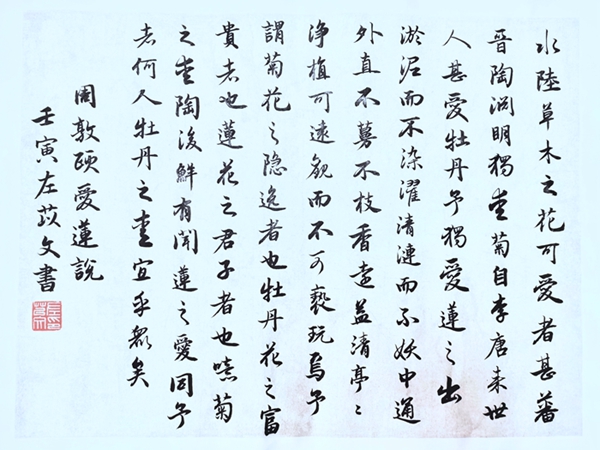 水陸草木之花可愛者甚蕃
晉陶淵明獨愛菊自李唐来世
人甚愛牡丹予獨愛蓮之出
淤泥而不染濯清漣而不妖中通
外直不蔓不枝香遠益清亭〻
淨植可遠觀而不可褻玩焉予
謂菊花之隐逸者也牡丹花之富
貴者也蓮花之君子者也噫菊
之愛陶後鮮有聞蓮之愛同予
者何人牡丹之愛宜乎衆矣
周敦頤愛蓮說
壬寅左苡文書